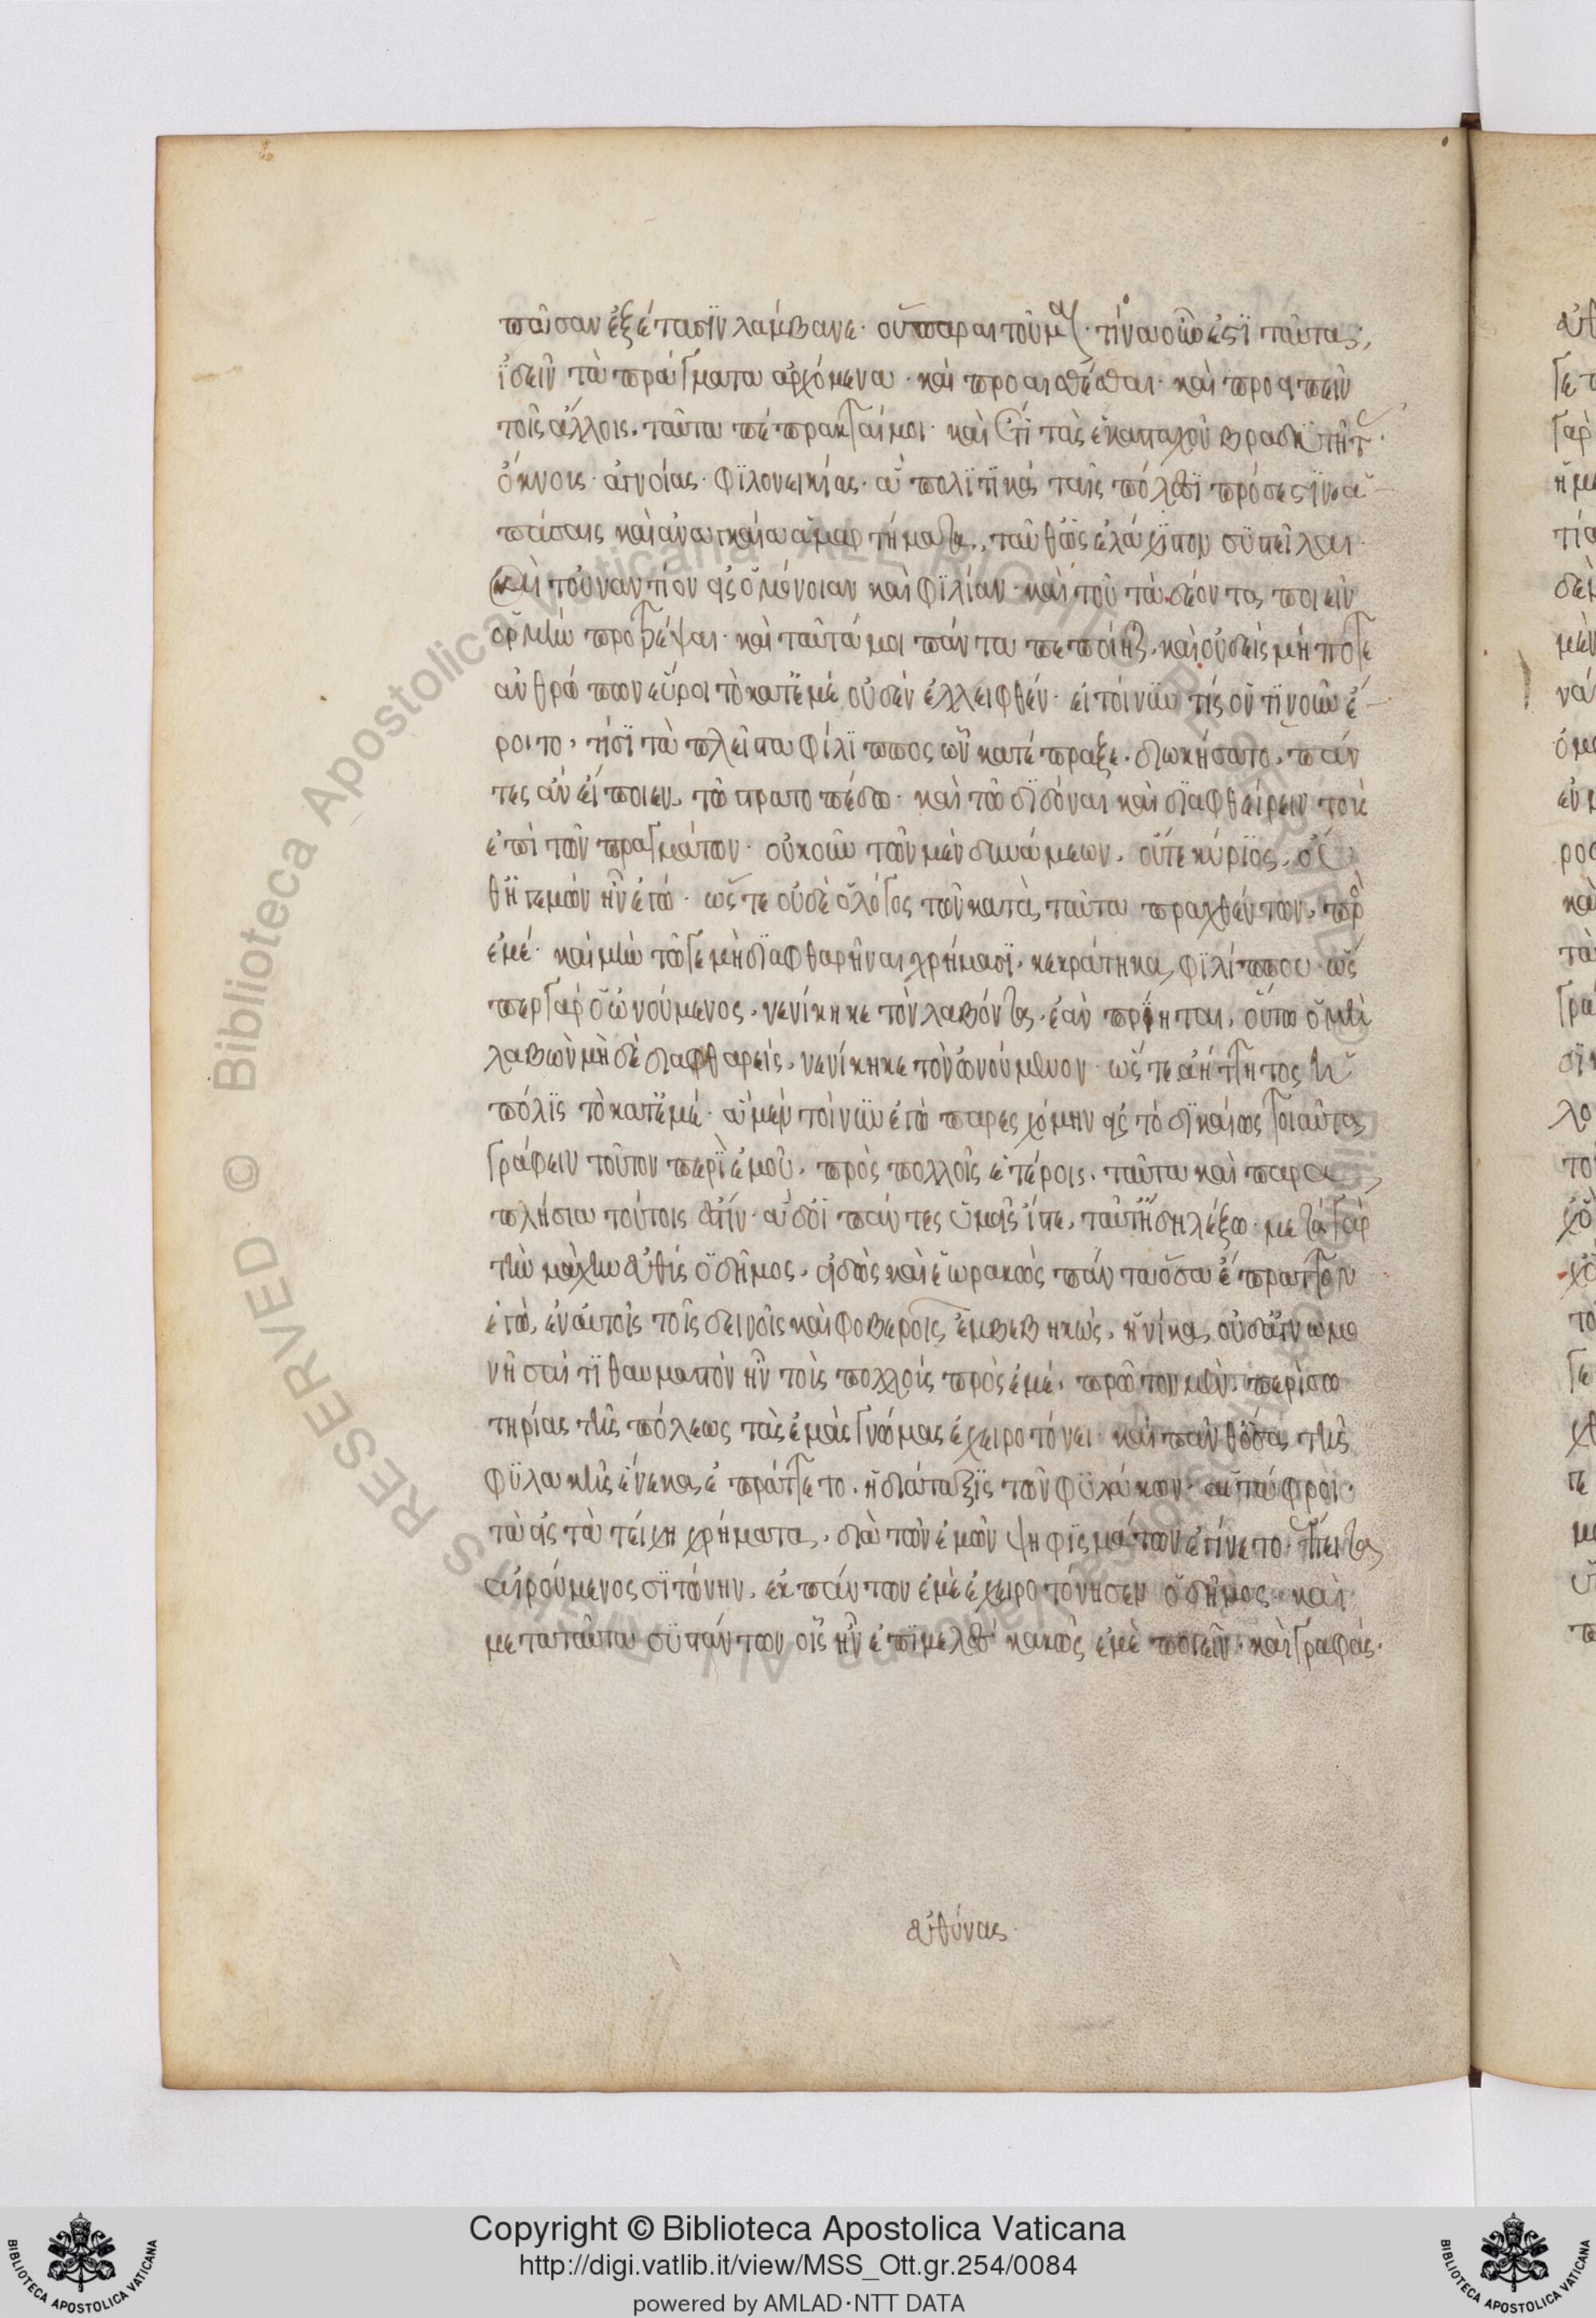 πᾶσαν ἐξέτασϊν λάμβανε· οὐ παραιτοῦμαι· τίνα οὖν ἐστὶ ταῦτα;
ἰδεῖν τὰ πράγματα ἀρχόμενα· καὶ προαισθέσθαι· καὶ προειπεῖν
τοῖς ἄλλοις. ταῦτα πέπρακταί μοι· καὶ ἔτι τὰς ἑκασταχοῦ βραδυτῆτας·
ὄκνους· ἀγνοίας· φϊλονεικίας· ἃ πολϊτϊκὰ ταῖς πόλεσϊ πρόσεστϊν ἁ
πάσαις καὶ ἀναγκαῖα ἁμαρτήματα, ταῦθ' ὡς ἐλάχϊστον συστεῖλαι·
καὶ τοὐναντίον εἰς ὁμόνοιαν καὶ φϊλίαν· καὶ τοῦ τὰ δέοντα ποιεῖν
ὁρμὴν προτρέψαι· καὶ ταῦτά μοι πάντα πεποίηται, καὶ οὐδεὶς μήποτε
ἀνθρώπων εὕροι τὸ κατ' ἐμὲ οὐδὲν ἐλλειφθέν· εἰ τοίνυν τίς ὁντϊνοῦν ἔ
ροιτο, τίσϊ τὰ πλεῖστα φίλϊππος ὧν κατέπραξε διωκήσατο, πάν
τες ἂν εἴποιεν, τῷ στρατοπέδω· καὶ τῶ δϊδόναι καὶ διαφθείρειν τοὺς
ἐπὶ τῶν πραγμάτων· οὐκοῦν τῶν μὲν δυνάμεων, οὔτε κύρϊος, οὔ
θ' ἡγεμὼν ἦν ἐγώ· ὥστε οὐδὲ ὁ λόγος τῶν κατὰ ταῦτα πραχθέντων, πρὸς
ἐμέ· καὶ μὴν τῶ γε μὴ δϊαφθαρῆναι χρήμασϊ, κεκράτηκα φϊλίππου· ὥσ
περ γὰρ ὁ ὠνούμενος, νενίκηκε τὸν λαβόντα, ἐὰν πρίηται, οὕτω ὁ μὴ
λαβὼν μηδὲ διαφθαρείς, νενίκηκε τὸν ὠνούμενον· ὥστε ἀήττητος ἡ
πόλϊς τὸ κατ' ἐμέ· ἃ μὲν τοίνυν ἐγὼ παρεσχόμην εἰς τὸ δϊκαίως τοιαῦτα
γράφειν τοῦτον περὶ ἐμοῦ, πρὸς πολλοῖς ἑτέροις, ταῦτα καὶ παρα
πλήσια τούτοις ἐστίν· ἃ δ' οἱ πάντες ὑμεῖς ἴστε, ταῦτ' ἤδη λέξω· μετὰ γὰρ
τὴν μάχην εὐθὺς ὁ δῆμος, εἰδὼς καὶ ἑωρακὼς πάντα ὅσα ἔπραττον
ἐγώ, ἐν αὐτοῖς τοῖς δεινοῖς καὶ φοβεροῖς ἐμβεβηκώς, ἡνίκα οὐδ' ἀγνωμο
νῆσαί τϊ θαυμαστὸν ἦν τοὺς πολλοὺς πρὸς ἐμέ, πρῶτον μὲν, περὶ σω
τηρίας τῆς πόλεως τὰς ἐμὰς γνώμας ἐχειροτόνει· καὶ πάνθ' ὅσα τῆς
φϋλακῆς ἕνεκα ἐπράττετο, ἡ διάταξϊς τῶν φϋλάκων· αἱ τάφροι·
τὰ εἰς τὰ τείχη χρήματα, διὰ τῶν ἐμῶν ψηφϊσμάτων ἐγίνετο· ἔπειτα
αἱρούμενος σϊτώνην, ἐκ πάντων ἐμὲ ἐχειροτόνησεν ὁ δῆμος· καὶ
μετὰ ταῦτα συστάντων οἷς ἦν ἐπϊμελὲς κακῶς ἐμὲ ποιεῖν· καὶ γραφάς·
εὐθύνας·
Copyright © Biblioteca Apostolica Vaticana
http://digi.vatlib.it/view/MSS_Ott.gr.254/0084
powered by AMLAD·NTT DATA